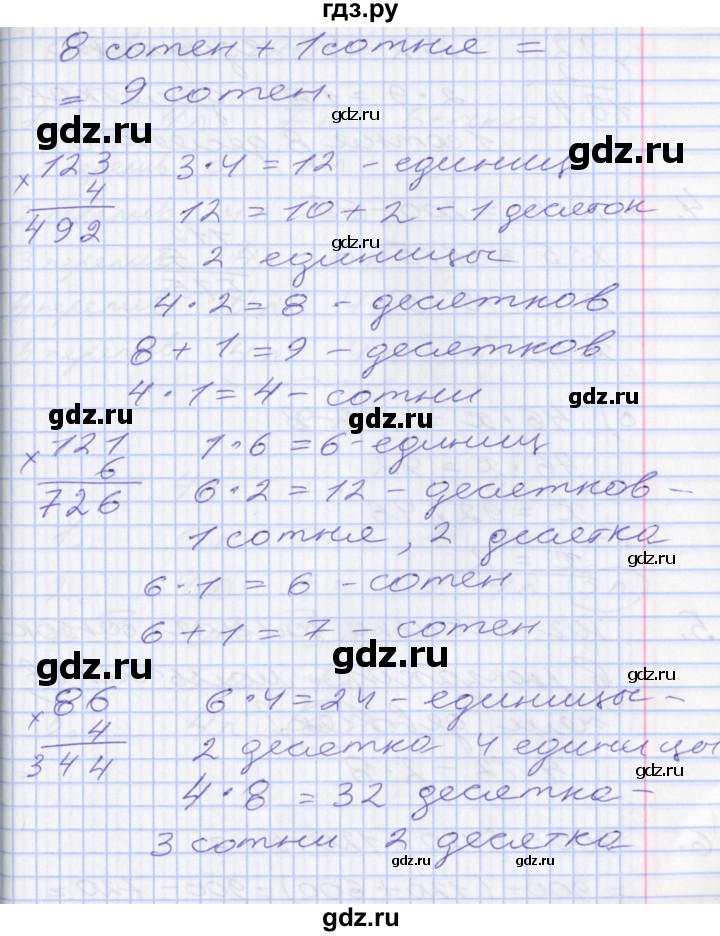 гдз.ру
8 сотен + 1 сотня =
= 9 сотен.
gdz.ru
gdz.ru
gdz.ru
123 3·4=12 – единиц
gdz.ru
× 4
492 12 = 10 + 2 – 1 десяток
gdz.ru
2 единицы
gdz.ru
4·2=8 – десятков
8 + 1 = 9 – десятков
gdz.ru
4·1=4 – сотни
gdz.ru
gdz.ru
gdz.ru
121 1·6=6 – единиц
× 6
726 6·2=12 – десятков –
gdz.ru
1 сотня, 2 десятка
gdz.ru
6·1=6 – сотен
6+1=7 – сотен
gdz.ru
gdz.ru
gdz.ru
86 6·4=24 – единицы –
× 4
344 2 десятка 4 единицы
gdz.ru
gdz.ru
4·8=32 десятка –
3 сотни 2 десятка
gdz.ru
gdz.ru
gdz.ru